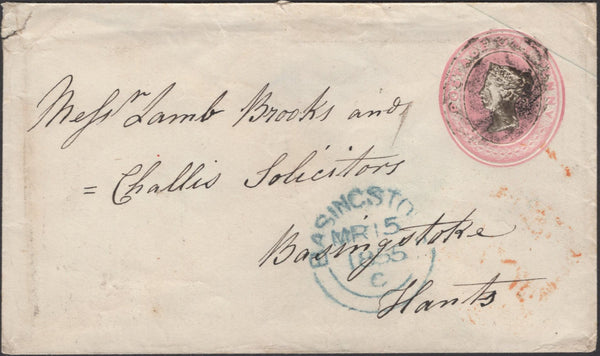 Messrs Lamb Brooks and
= Challis Solicitors
Basingstoke
Hants
BASINGSTO
MR 15
1855
C